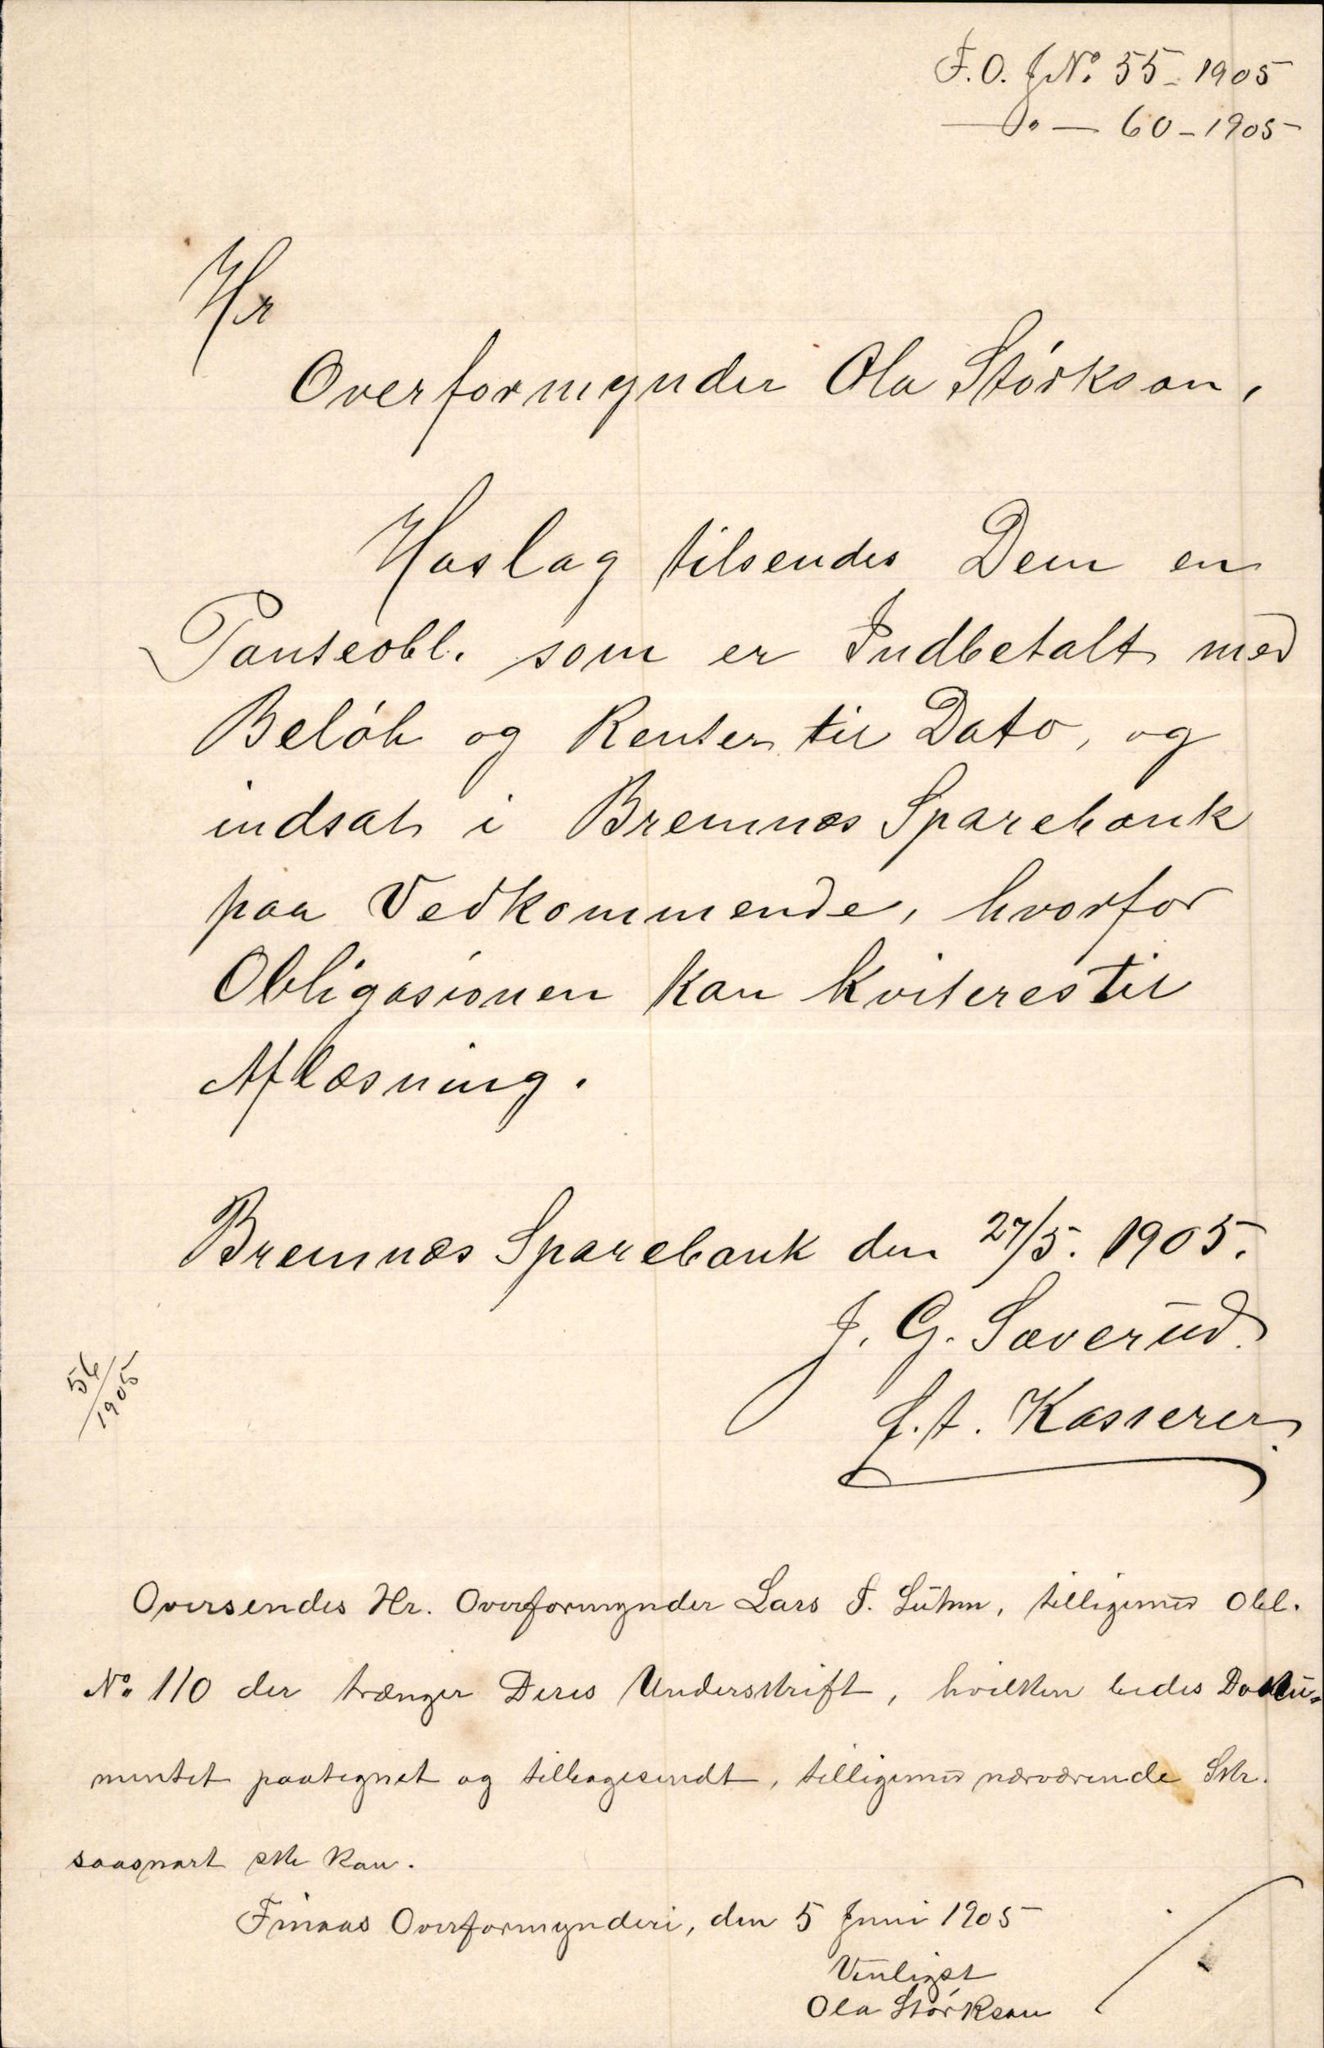 F.O. J.No. 55-1905
— " — 60-1905
Hr
Overformynder Ola Störkson,
Hoslag tilsendes Dem en
Panteobl. som er Indbetalt med
Belöb og Renter til Dato, og
indsat i Bremnes Sparebank
paa Vedkommende, hvorfor
Obligasionen kan kviteres til
Aflæsning.
Bremnæs Sparebank den 27/5. 1905.
J. G. Sæverud.
f.t. Kasserer.
56/1905
Oversendes Hr. Overformynder Lars F. , tilligemed Obl.
No. 110 der trænger Deres Underskrift, hvilken bedes Doku-
mentet paategnet og tilbagesendt, tilligemed nærværende Skr.
saasnart ske kan.
Finaas Overformynderi, den 5 Juni 1905
Venligst
Ola Störkson